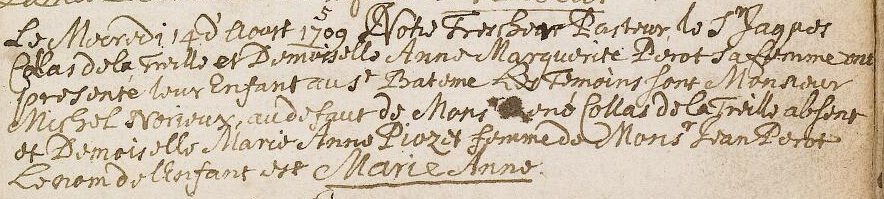 Le Mecredi 14d' Aoust 1709 Notre Trescher Pasteur, le Sr Jaques
Collas de la Treille et Demoiselle Anne Marguerite Perot sa femme ont
presenté leur Enfant au St Bateme Les Temoins sont Monsieur
Michel Norieux, au defaut de Monsr René Collas de la Treille absent
et Demoiselle Marie Anne Piozet femme de Monsr Jean Perot
Le nom de l'Enfant est Marie Anne.